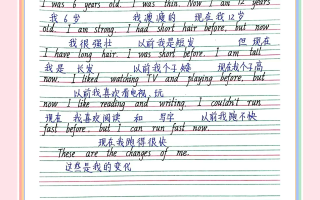 I was 6 years old. I was thin. Now I am 12 years
我6岁 我瘦瘦的 现在我12岁
old. I am strong. I had short hair before, but now
我很强壮 以前我是短发 但现在
I have long hair. I was short before. I am
我是长发 以前我个子矮 现在我个子高
now. I liked watching TV and playing before, but
以前我喜欢看电视,玩
now I like reading and writing. I couldn't run
现在我喜欢阅读和写字 以前我跑不快
fast before, but I can run fast now.
现在我跑得很快
These are the changes of me.
这些是我的变化